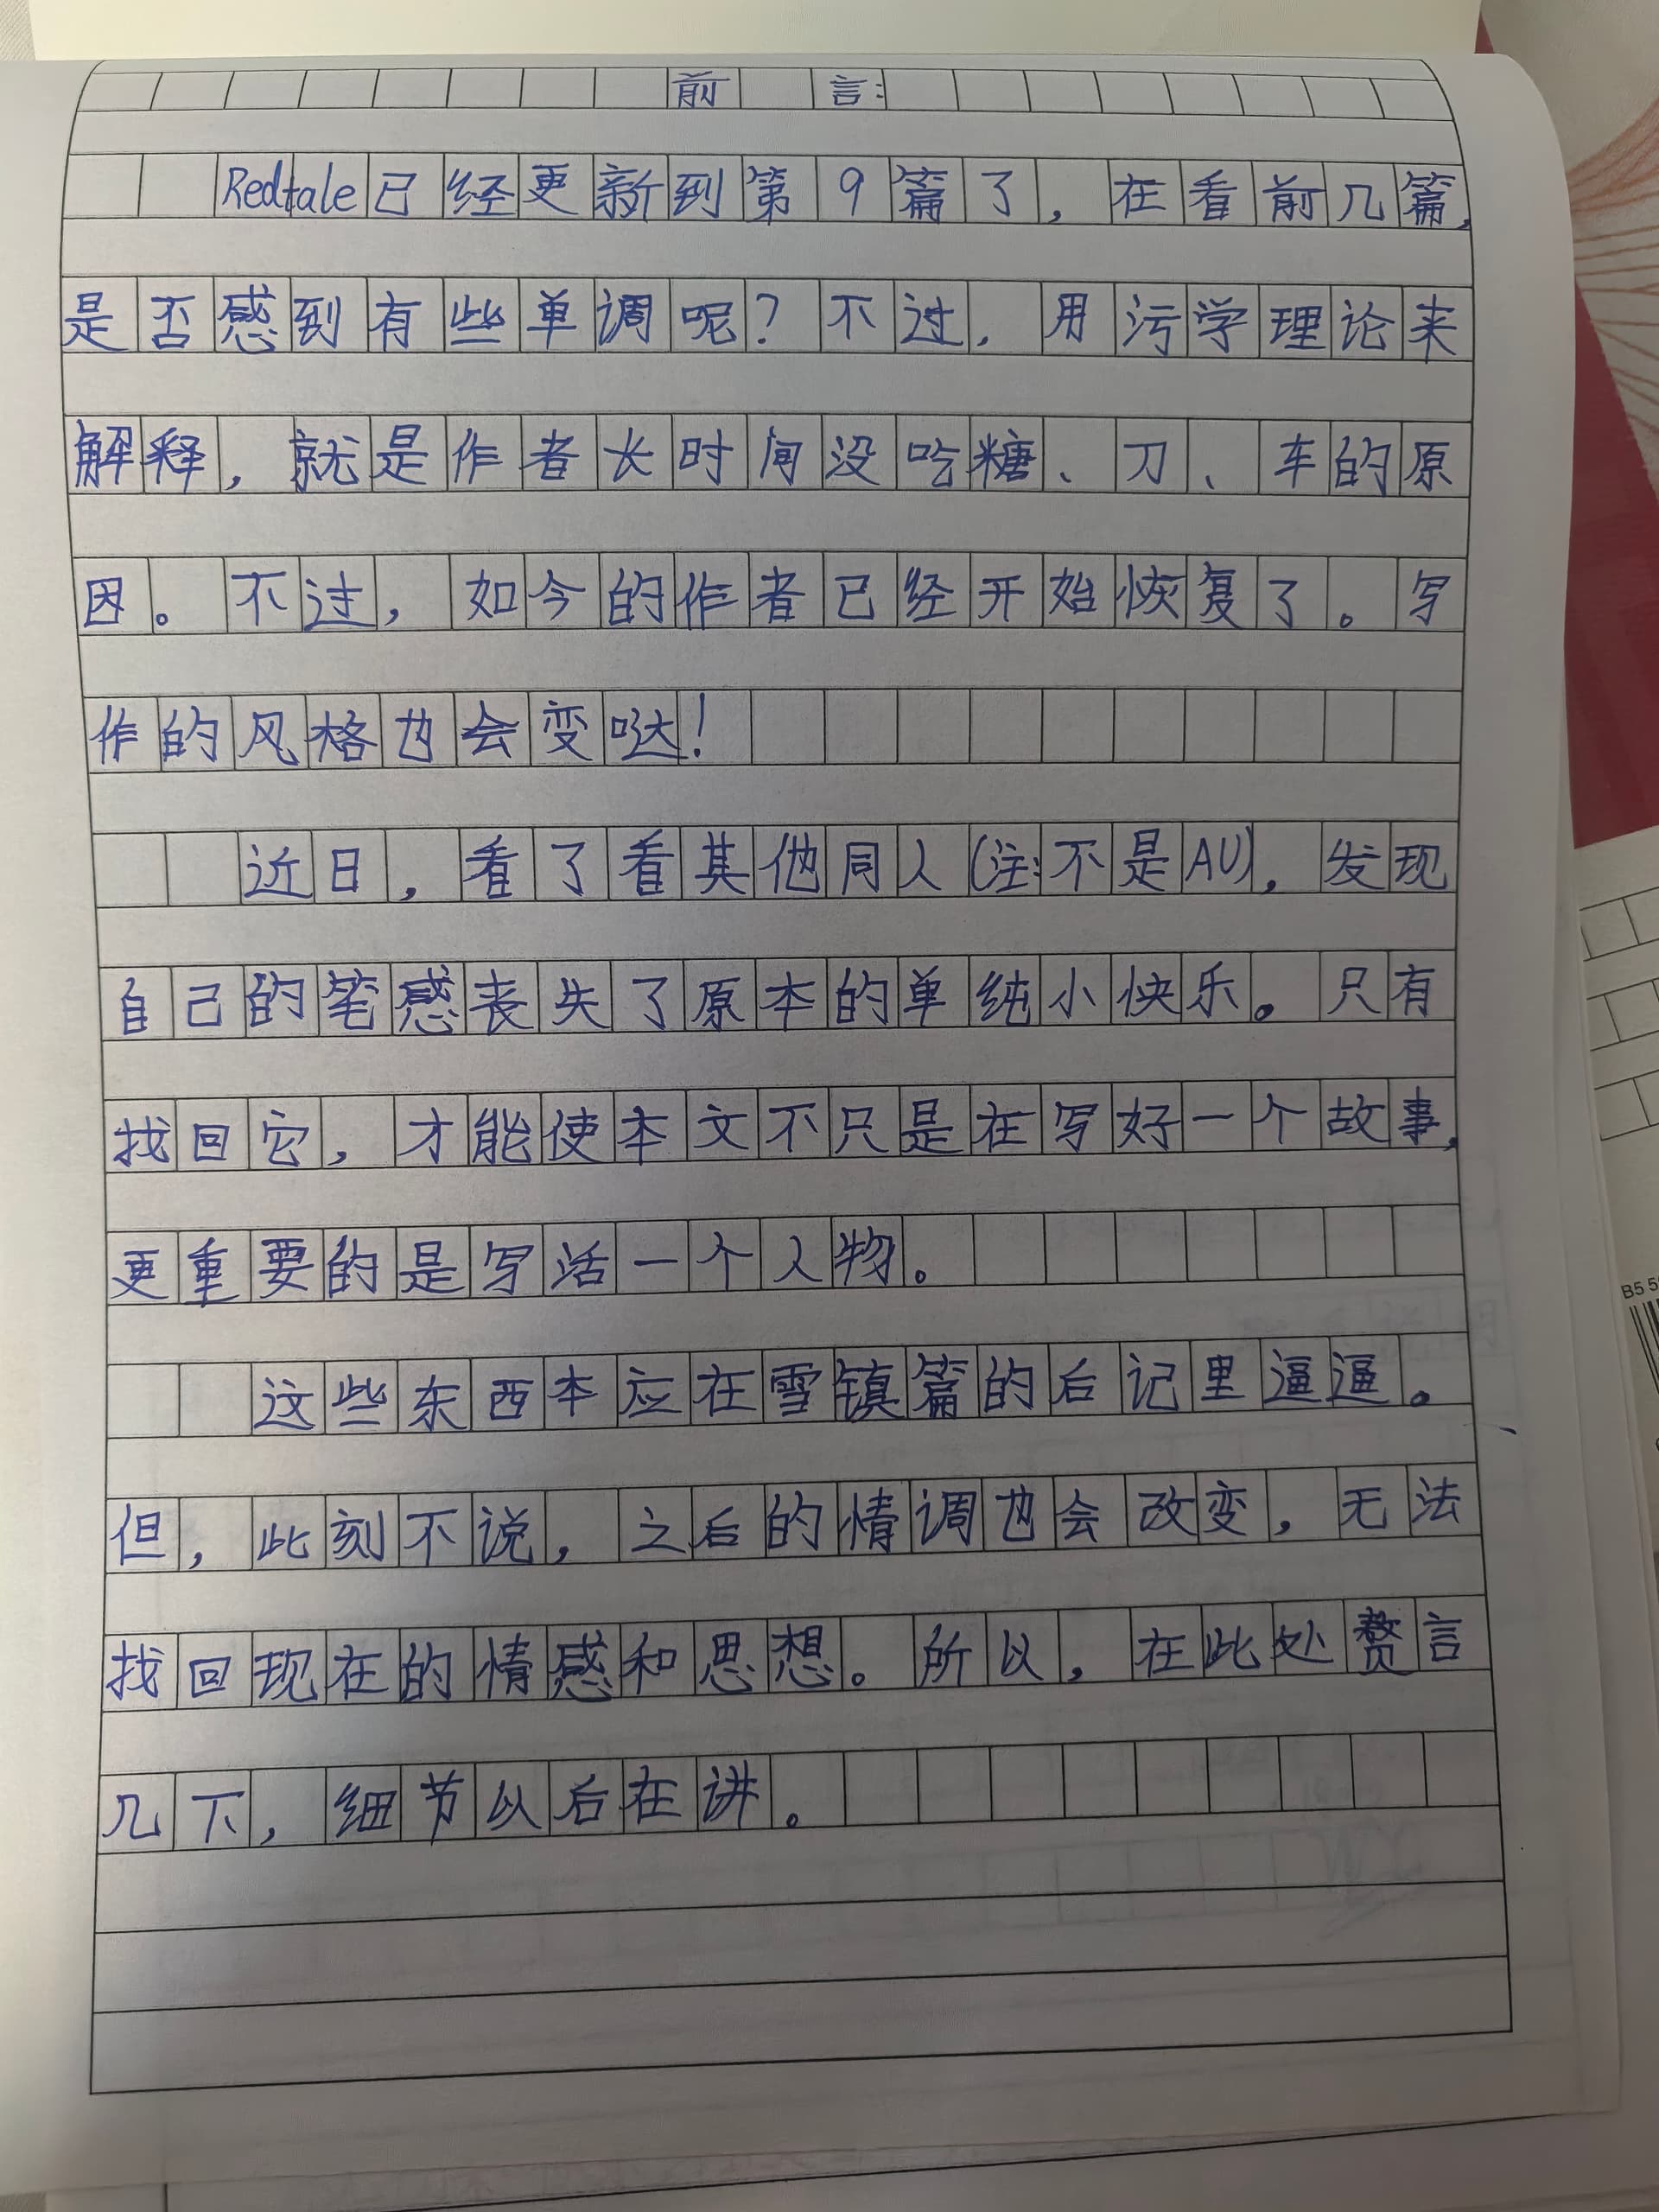 前言:
Redtale已经更新到第9篇了,在看前几篇,
是否感到有些单调呢?不过,用污学理论来
解释,就是作者长时间没吃糖、刀、车的原
因。不过,如今的作者已经开始恢复了。写
作的风格也会变哒!
近日,看了看其他同人(注:不是AU),发现
自己的笔感丧失了原本的单纯小快乐。只有
找回它,才能使本文不只是在写好一个故事,
更重要的是写活一个人物。
这些东西本应在雪镇篇的后记里逼逼。
但,此刻不说,之后的情调也会改变,无法
找回现在的情感和思想。所以,在此处赘言
几下,细节以后在讲。
B5 5